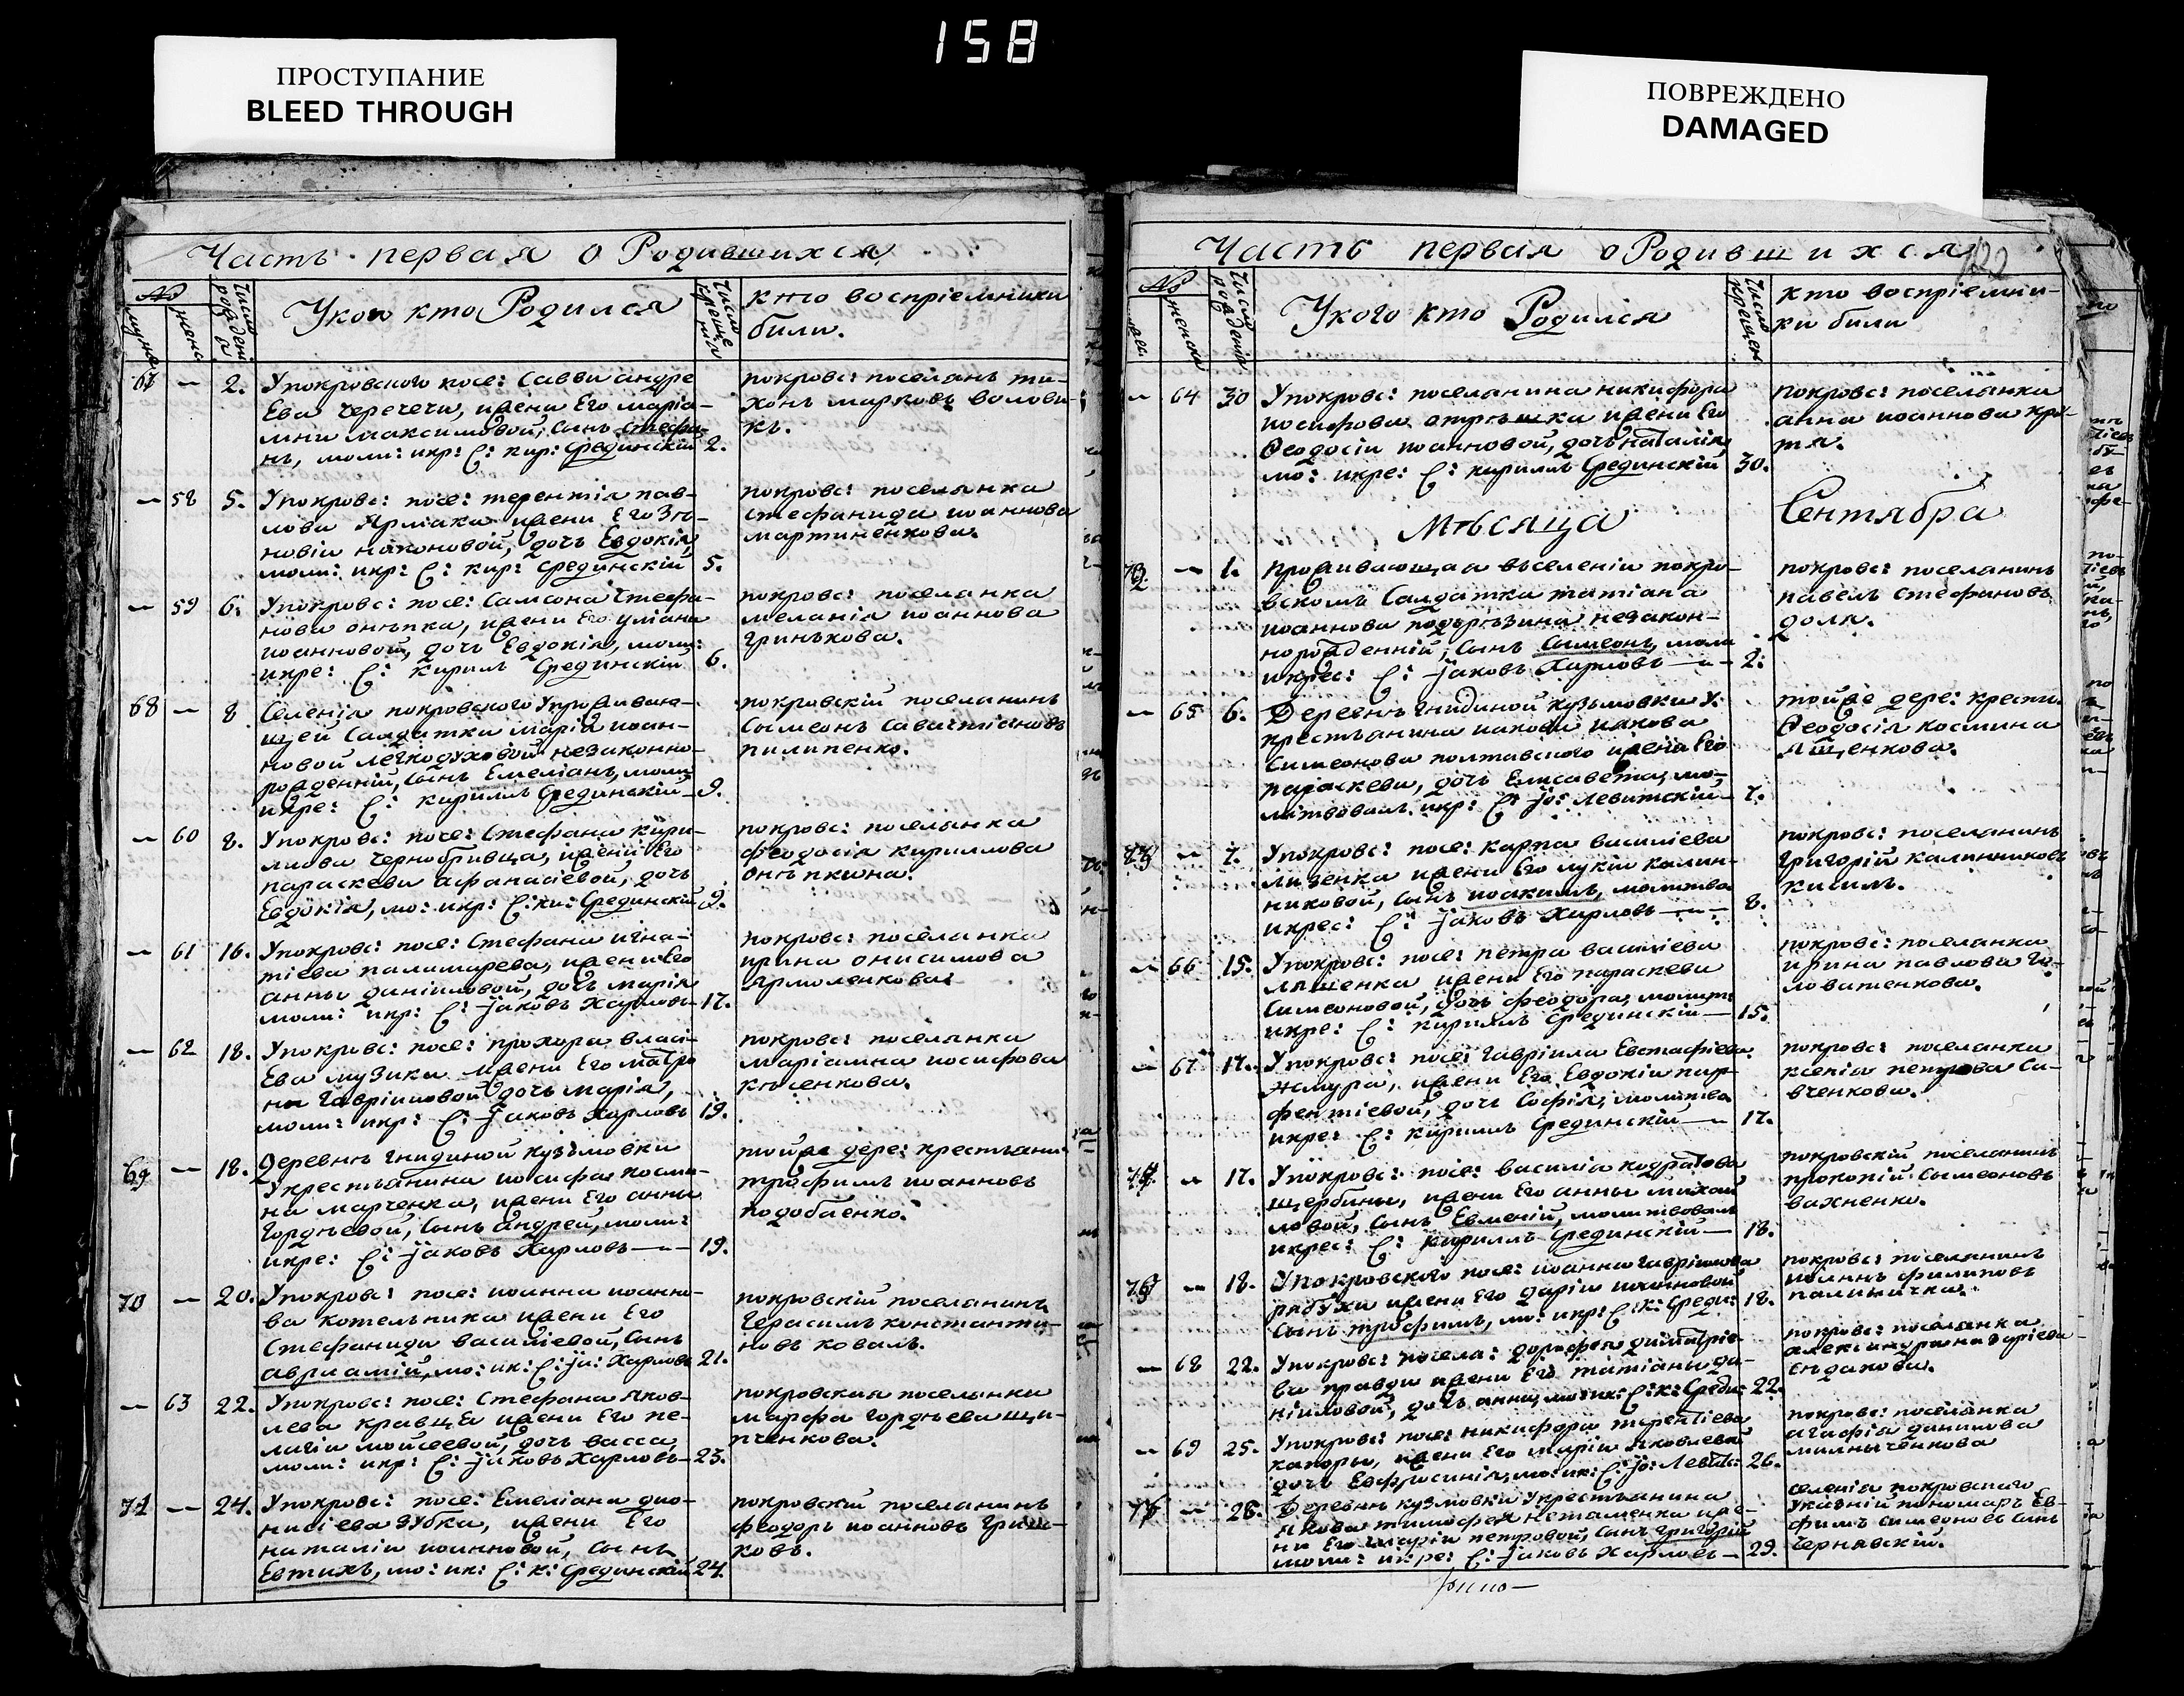 158
ПРОСТУПАНИЕ
BLEED THROUGH
ПОВРЕЖДЕНО
DAMAGED
Часть первая о Родившихся
№
мужес
женс
Число рожденія
У кого кто Родился
Число крещенія
кто воспріемники
били.
67 — 2. Упокровского посе: Савви андре
Ева Черечечи, жени Его маріа-
мни максимовой, сынъ Стефа-
нъ, моли: икр: С: кир: Срединскій 2.
покровс: поселянъ ти-
хонъ марковъ волови-
къ.
— 58 5. Упокровс: посе: терентія пав-
лова Ярмака жени Его Зѣ-
новіи никоновой, дочь Евдокія,
моли: икр: С: кир: Срединскій 5.
покровс: поселянка
стефанида иоаннова
мартиненкова.
— 59 6. Упокровс: посе: Самсона Стефа-
нова онѣпка, жени Его уліани
иоанновой, дочь Евдокія, моли:
икре: С: Кирилъ Срединскій 6.
покровс: поселянка
меланія иоаннова
гринькова.
68 — 8 Селенія покровского Упроживаю-
щей Салдатки маріи иоан-
новой легкодуховой незаконно-
рожденній, сынъ Емеліанъ, моли
икре: С: Кириллъ Срединскій — 9.
покровскій поселянинъ
Сымеонъ Савастіановъ
пилипенко.
— 60 8. Упокровс: посе: Стефана Кири-
лова Чернобривца, жени Его
параскеви Афанасіевой, дочь
Евдокія, мо: икр: С: ки: Срединскій 9.
покровс: поселянка
феодосія Кириллова
онѣпкина.
— 61 16. Упокровс: посе: Стефана игна-
тіева палимарева, жени Его
анны даніиловой, дочь марія
моли: икр: С: Іаковъ Харловъ — 17.
покровс: поселянка
ирина онисимова
Ярмоленкова
— 62 18. Упокровс: посе: прохора власі-
Ева музики жени Его матро
ни гавріиловой дочь марія,
моли: икр: С: Іаковъ Харловъ 19.
покровс: поселянка
маріамна иосифова
кѣсенкова.
69 — 18. Деревнѣ гнидиной Кузьмовки
Укрестьянина иосифа косми-
на марченка, жени Его анны
гордѣевой, сынъ андрей, моли:
икре: С: Іаковъ Харловъ — 19.
тойже дере: крестьяни:
трофимъ иоанновъ
подобаенко.
70 — 20. Упокровс: посе: иоанна иоанно-
ва котельника жени Его
Стефаниди василіевой, сынъ
авриамій, мо: ик: С: Іа: Харловъ 21.
покровскій поселянинъ
герасимъ константи-
новъ коваль.
— 63 22. Упокровс: посе: Стефана Яков-
лева кравца жени Его пе-
лагіи мойсеевой, дочь васса,
моли: икр: С: Іаковъ Харловъ — 23.
покровская поселянка
марфа гордѣева щи-
пченкова.
71 — 24. Упокровс: посе: Емеліана дио-
нисіева зубка, жени Его
наталіи иоанновой, сынъ
Евтихъ, мо: ик: С: к: Срединскій 24.
покровскій поселянинъ
феодоръ иоанновъ грин-
ковъ.
Часть первая о Родившихся
122
№
женски
Число рожденія
У кого кто Родился
Число крещен
кто воспріемни-
ки били
— 64 30 Упокровс: поселянина никифора
иосифова отрѣшка жени Его
Феодосіи иоанновой, дочь наталія,
мо: икре: С: кириллъ Срединскій 30.
покровс: поселянка
анна иоаннова кро-
тя.
Мѣсяца Сентября
72. — 1. проживающая вселеніи покро-
вскомъ Салдатка татіана
иоаннова подърѣзина незакон-
норожденній, сынъ Сымеонъ, моли
икрес: С: Іаковъ Харловъ — 2:
покровс: поселянинъ
павелъ стефановъ
доля.
— 65 6. Деревнѣ гнидиной кузьмовки У:
крестьянина иакова
Симеонова полтавского жени Его
параскеви, дочь Елисавета, мо-
литвовалъ икр: С: Іо: Левитскій — 7.
тойже дере: крестя.
Феодосія космина
лященкова.
73 — 7. Упокровс: посе: карпа василіева
лизенка жени Его лукіи калин-
никовой, сынъ иоакимъ, молитво
икрес: С: Іаковъ Харловъ — 8.
покровс: поселянинъ
григорій калинниковъ
кисиль.
— 66 15. Упокровс: посе: петра василіева
ляшенка жени Его параскеви
Симеоновой, дочь феодора, молит:
икре: С: кириллъ Срединскій — 15.
покровс: поселянка
ирина павлова го-
ловатенкова.
— 67 17. Упокровс: посе: гавріила Евстафіева
жмура, жени Его Евдокіи пар-
фентіевой, дочь Софія, молитво
икре: С: кириллъ Срединскій — 17.
покровс: поселянка
ксенія петрова Са-
вченкова.
74. — 17. Упокровс: посе: василіа кодратова
щербини, жени Его анны михаи
ловой, сынъ Евменій, молитвовалъ
икрес: С: кириллъ Срединскій — 18.
покровскій поселянинъ
прокопій Сымеоновъ
вахненко.
75 — 18. Упокровского посе: иоанна гавріилова
рябухи жени Его даріи иоанновой
сынъ трофимъ, мо: икр: С: К: Среди: 18.
покровс: поселянинъ
иоаннъ филиповъ
паличка.
— 68 22. Упокровс: посела: дорофея димитріе-
ва правди жени Его татіаны да-
ніиловой, дочь анна, мо: ик: С: к: Среди: 22.
покровс: поселянка
александра назуріева
— 69 25. Упокровс: посе: никифора терентіева
капоры, жени Его маріи яковлевой
дочь Евфросинія, мо: ик: С: Іо: Левит: 26.
покровс: поселянка
агафія данилова
76 — 28. Деревнѣ кузмовки Укрестьянина
якова тимофея нетаменка же-
ни Его маріи петровой, сынъ григорій
моли: икре: С: Іаковъ Харловъ — 29.
селенія покровского
Указній пономарь Ев-
фимъ симеоновъ сынъ
Чернявскій.